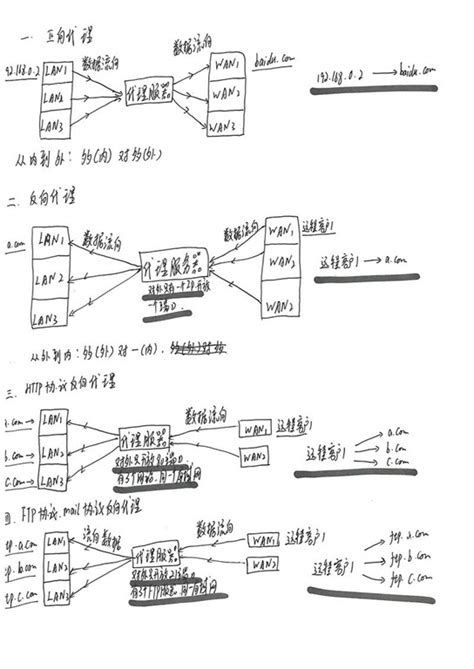 一. 正向代理
数据流向
数据流向
92.168.0.2
LAN1
LAN2
LAN3
代理服务器
WAN1
WAN2
WAN3
baidu.com
192.168.0.2 → baidu.com
从内到外: 多(内) 对多(外)
二. 反向代理
a.com
LAN1
LAN2
LAN3
数据流向
代理服务器
对外只有一个IP开放
一个端口.
数据流向
WAN1
WAN2
WAN2
远程客户1
远程客户1 → a.com
从外到内: 多(外) 对一(内).
三. HTTP协议反向代理
a.com →
b.com →
c.com →
LAN1
LAN2
LAN3
代理服务器
数据流向
WAN1
WAN2
远程客户1
远程客户1
a.com
b.com
c.com
四. FTP协议, mail协议反向代理
ftp.a.com
ftp.b.com
ftp.c.com
LAN1
LAN2
LAN3
流向数据
代理服务器
数据流向
WAN1
WAN2
远程客户1
远程客户1
ftp.a.com
ftp.b.com
ftp.c.com